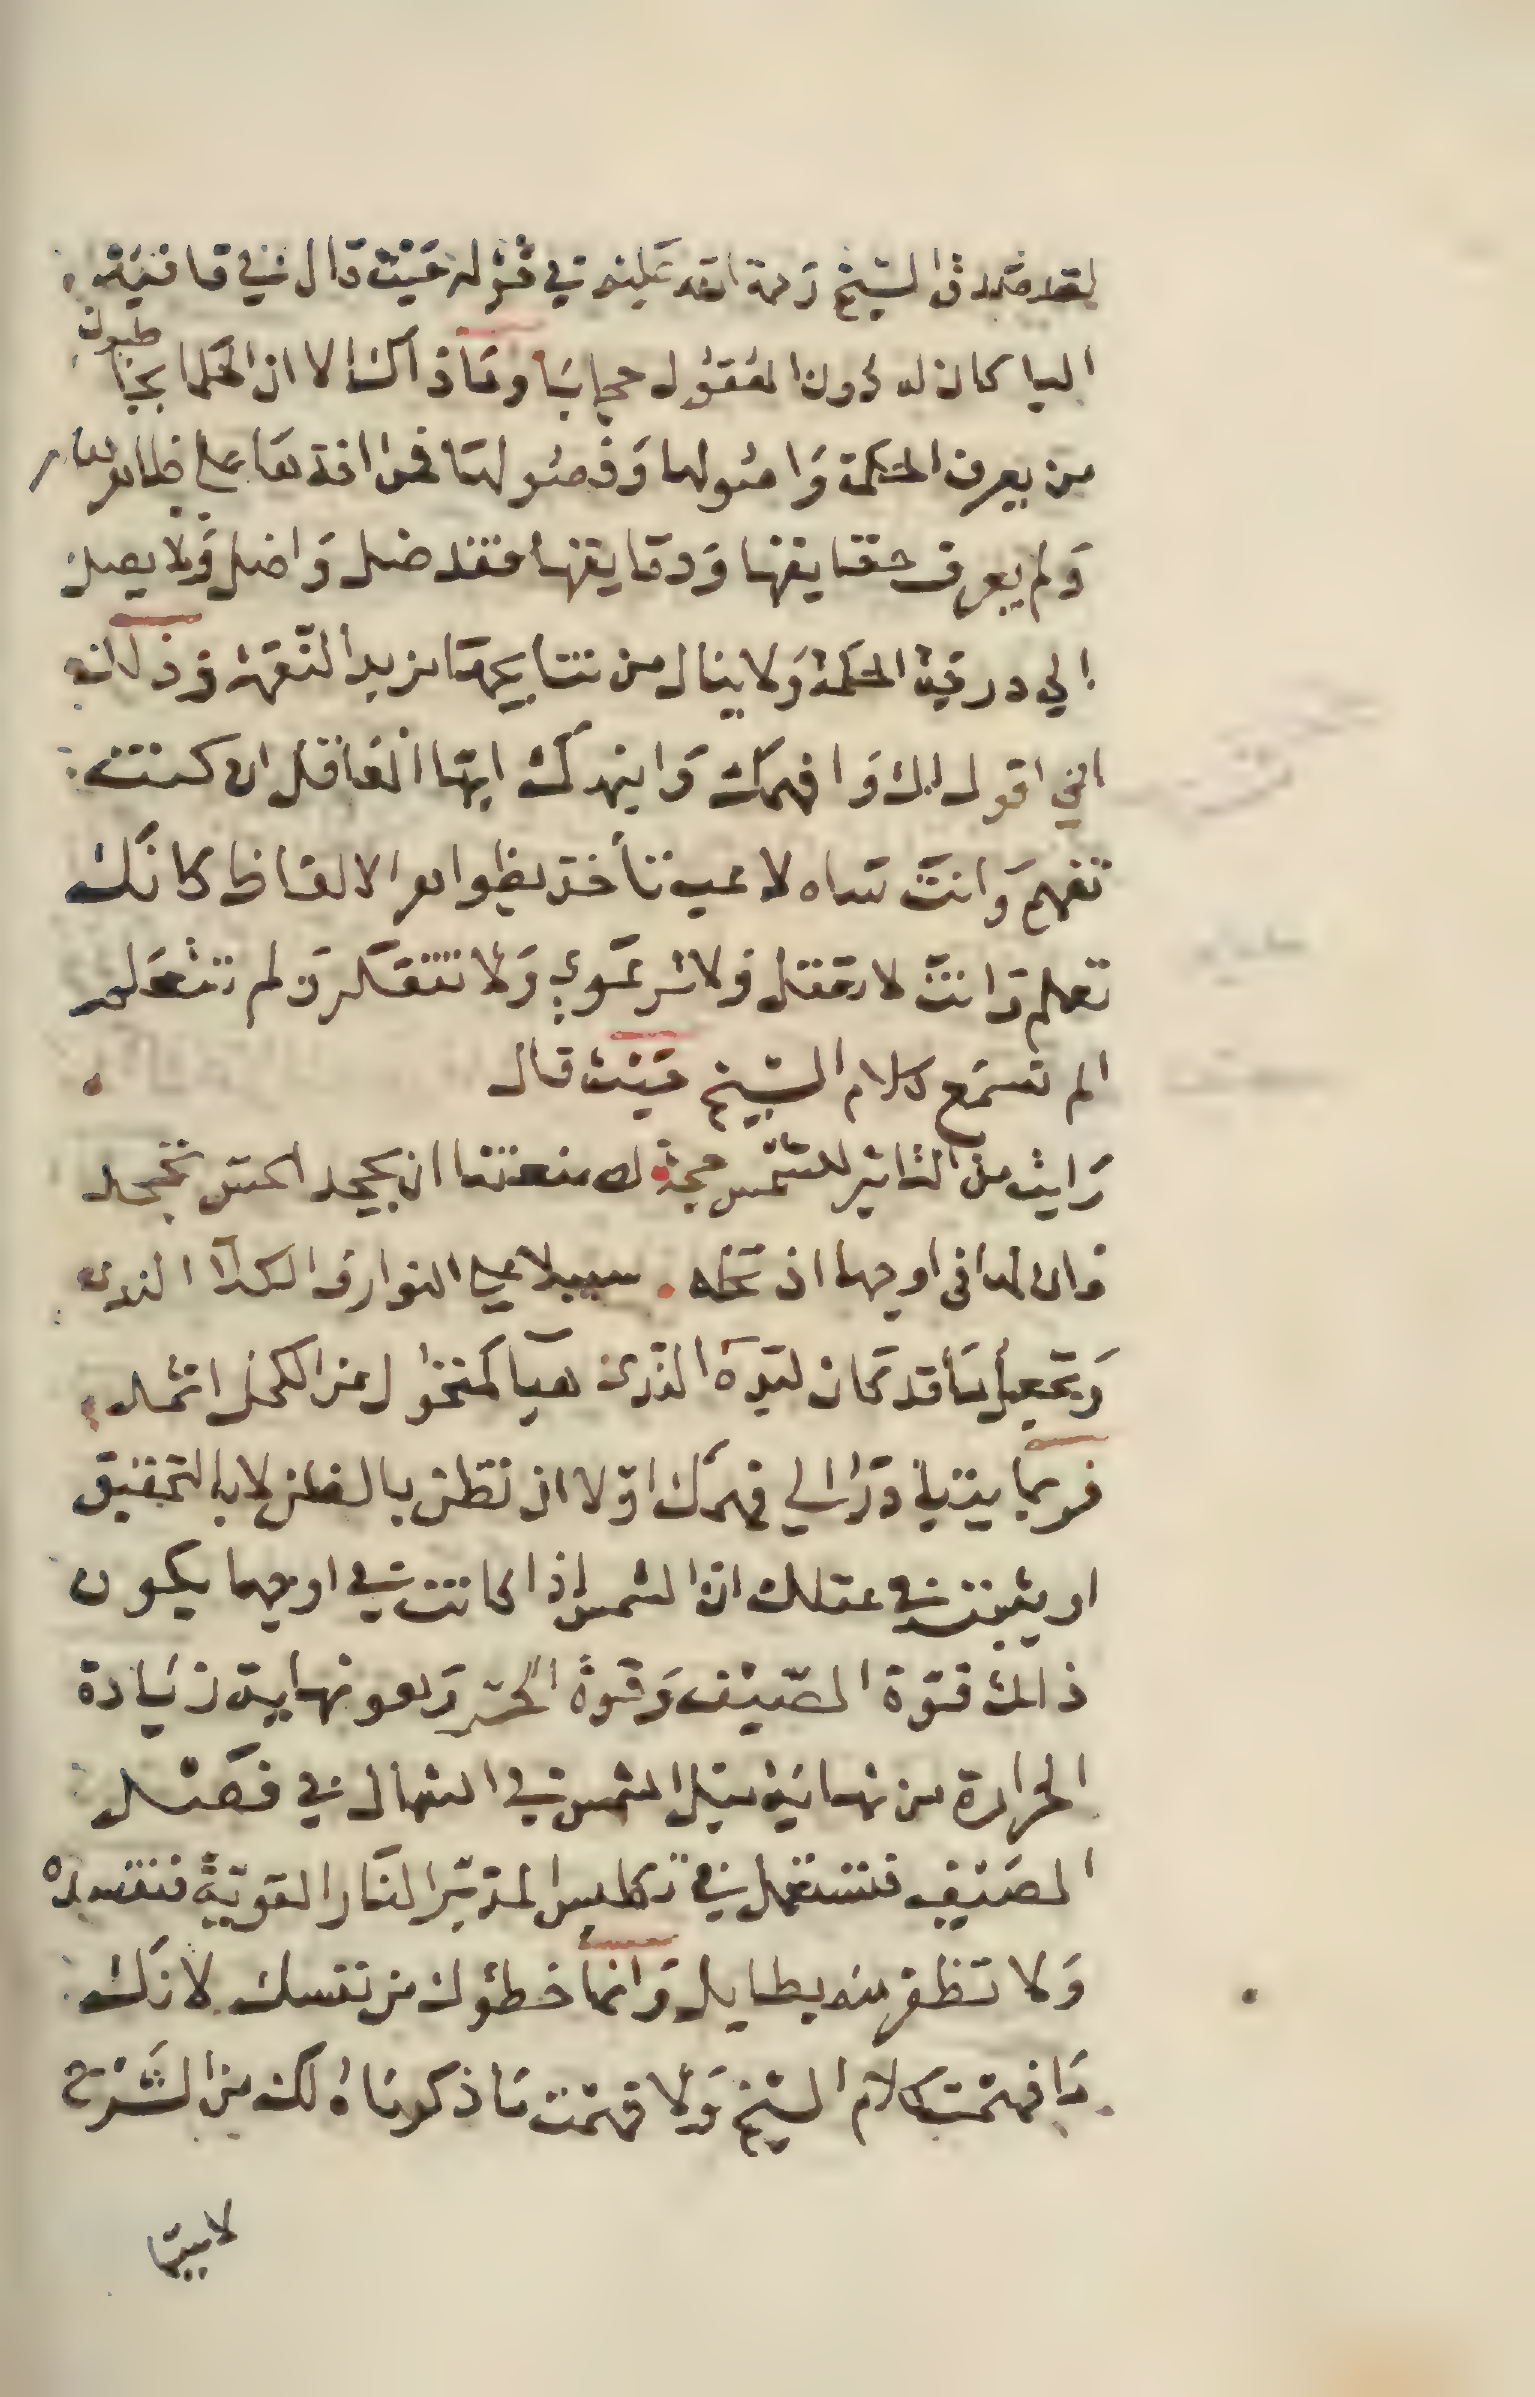 لقد صدق الشيخ رحمة الله عليه في قوله حيث قال في قافية
اليا كان له دون العقول حجابا وما ذاك الا ان الحكما يخاطبون
من يعرف الحكمة واصولها وفصولها فمن اخذها على ظاهرها
ولم يعرف حقايقها ودقايقها فقد ضل واضل ولا يصل
الي درجة الحكمة ولا ينال من نتايجها مزيد النعمة وذلك انه
اني اقول لك وافهمك وانبهك ايها الغافل ان كنت
تفهم وانت ساه لاعب تأخذ بظواهر الالفاظ كانك
تعلم وانت لا تعقل ولا ترعوي ولا تتفكر ولم تتعلم
الم تسمع كلام الشيخ حيث قال
رايت من التاثير للشمس حجة لك منعتنا ان يجحد الحس تجحد
فان لها في اوجها اذ تحله سبيلا علي النوار والكلا الندي
وتجعل ما قد كان لبده الندي هبا كمنخول من الكحل اثمد
فربما يتبادر الي فهمك اولا ان تظن بالظن لا بالتحقيق
او يثبت في عقلك ان الشمس اذا كانت في اوجها يكون
ذالك قوة الصيف وقوة الحر وهو نهاية زيادة
الحرارة من نهاية ميل الشمس في الشمال في فصل
الصيف فتستعمل في تكليس المدبر النار القوية فتفسده
ولا تظفر منه بطايل وانما خطؤك من نفسك لانك
ما فهمت كلام الشيخ ولا فهمت ما ذكرناه لك من الشرح
لاسيما